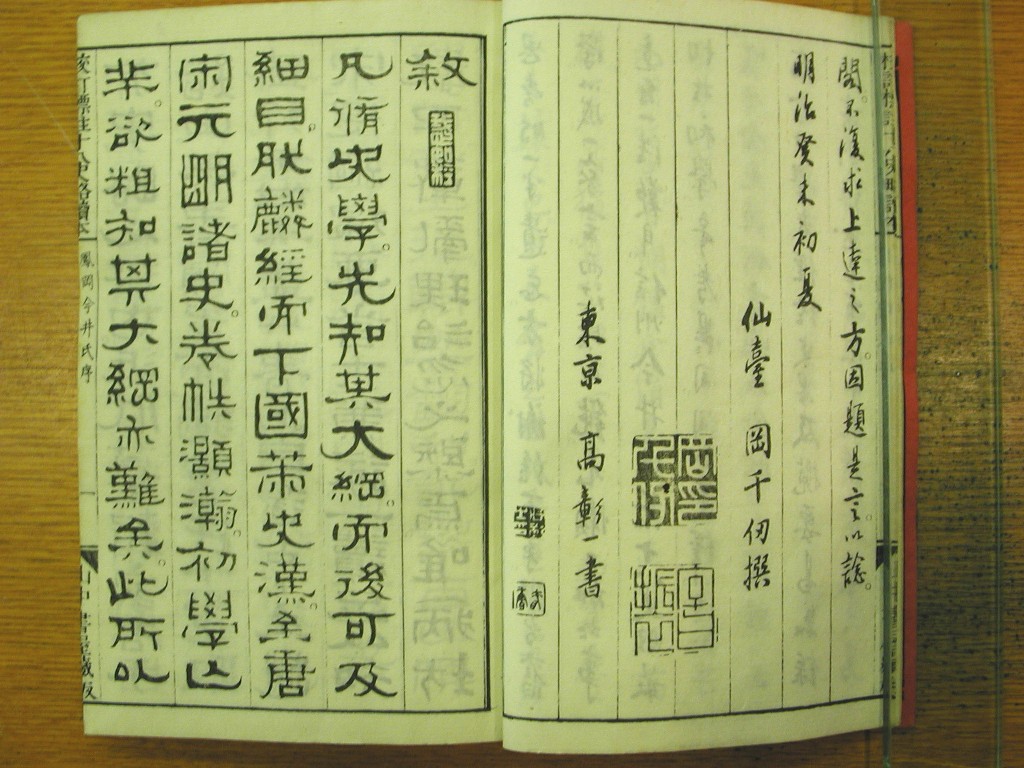 閣。不復求上達之方。因題是言。以諗。
明治癸未初夏
仙臺 岡千仭撰
東京 高彰一書
敘
凡脩史學。先知其大綱。而後可及
細目。耽麟經而下。國策史漢。至唐
宋元明諸史。卷帙灝瀚。初學之
輩。欲粗知其大綱亦難矣。此所以
校訂標註十八史略讀本
鳳岡今井氏序
一